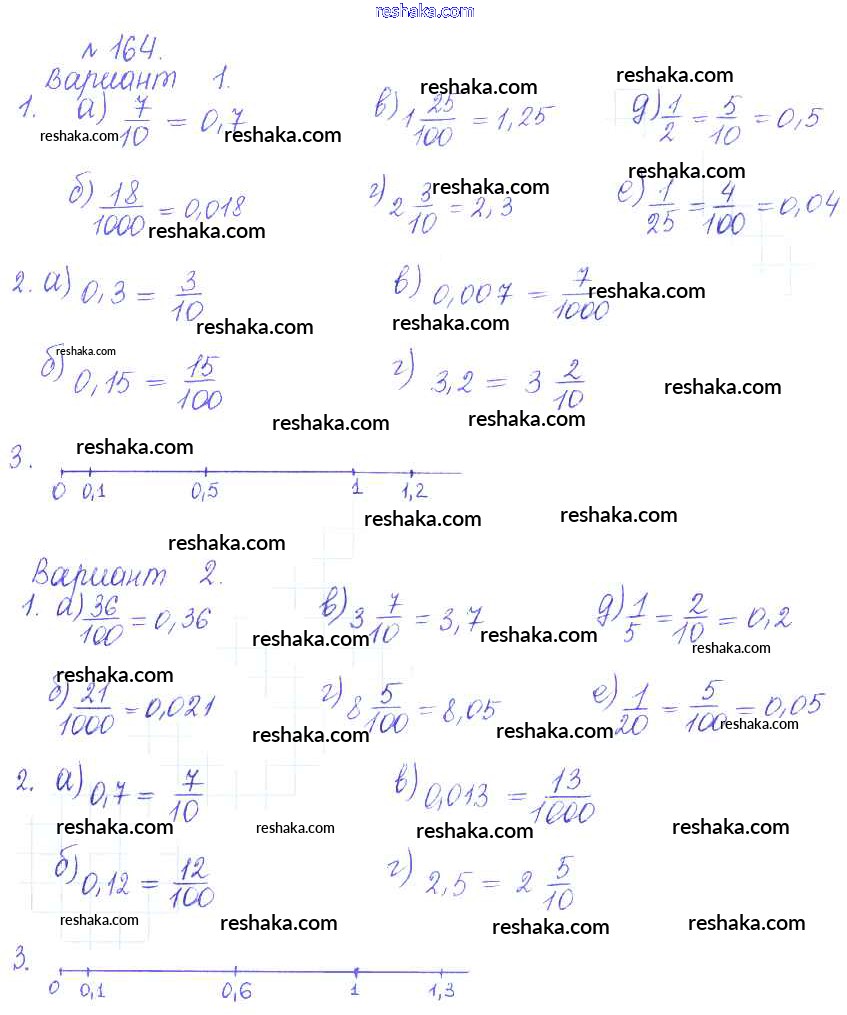 reshaka.com
№ 164.
Вариант 1.
1. а) 7/10 = 0,7 в) 1 25/100 = 1,25 д) 1/2 = 5/10 = 0,5
reshaka.com reshaka.com reshaka.com reshaka.com
б) 18/1000 = 0,018 г) 2 3/10 = 2,3 е) 1/25 = 4/100 = 0,04
reshaka.com reshaka.com reshaka.com
2. а) 0,3 = 3/10 в) 0,007 = 7/1000
reshaka.com reshaka.com reshaka.com
б) 0,15 = 15/100 г) 3,2 = 3 2/10
reshaka.com reshaka.com
reshaka.com reshaka.com reshaka.com
3.
0 0,1 0,5 1 1,2
reshaka.com reshaka.com reshaka.com
Вариант 2.
1. а) 36/100 = 0,36 в) 3 7/10 = 3,7 д) 1/5 = 2/10 = 0,2
reshaka.com reshaka.com reshaka.com
reshaka.com
б) 21/1000 = 0,021 г) 8 5/100 = 8,05 е) 1/20 = 5/100 = 0,05
reshaka.com reshaka.com reshaka.com
2. а) 0,7 = 7/10 в) 0,013 = 13/1000
reshaka.com reshaka.com reshaka.com reshaka.com
б) 0,12 = 12/100 г) 2,5 = 2 5/10
reshaka.com reshaka.com reshaka.com reshaka.com
3.
0 0,1 0,6 1 1,3